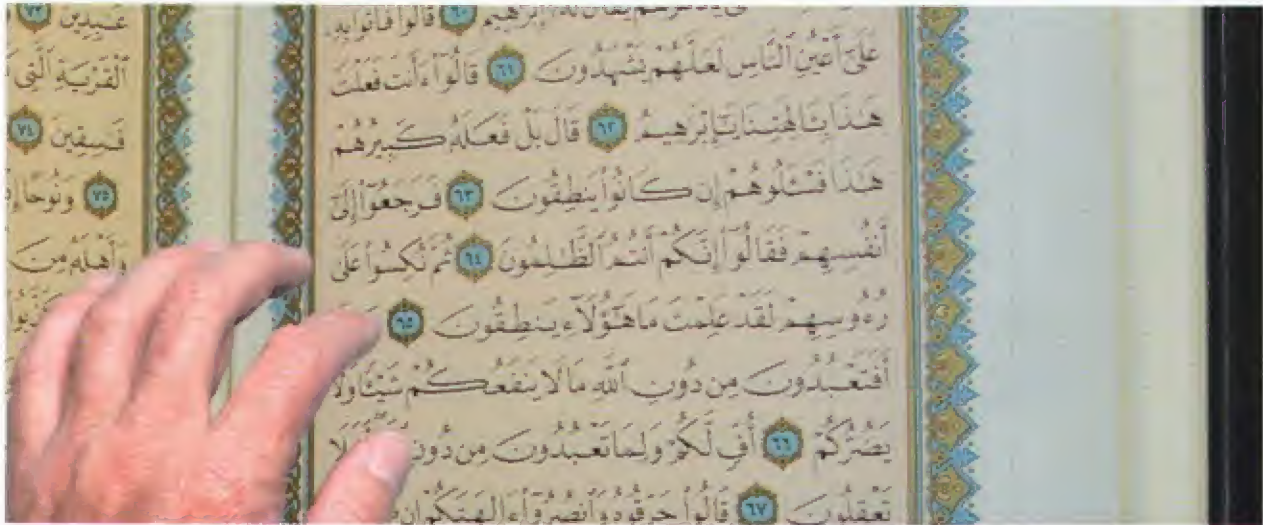 يُقَالُ لَهُۥٓ إِبْرَٰهِيمُ ٦٠ قَالُوا۟ فَأْتُوا۟ بِهِۦ
عَلَىٰٓ أَعْيُنِ ٱلنَّاسِ لَعَلَّهُمْ يَشْهَدُونَ ٦١ قَالُوٓا۟ ءَأَنتَ فَعَلْتَ
هَٰذَا بِـَٔالِهَتِنَا يَٰٓإِبْرَٰهِيمُ ٦٢ قَالَ بَلْ فَعَلَهُۥ كَبِيرُهُمْ
هَٰذَا فَسْـَٔلُوهُمْ إِن كَانُوا۟ يَنطِقُونَ ٦٣ فَرَجَعُوٓا۟ إِلَىٰٓ
أَنفُسِهِمْ فَقَالُوٓا۟ إِنَّكُمْ أَنتُمُ ٱلظَّٰلِمُونَ ٦٤ ثُمَّ نُكِسُوا۟ عَلَىٰ
رُءُوسِهِمْ لَقَدْ عَلِمْتَ مَا هَٰٓؤُلَآءِ يَنطِقُونَ ٦٥
أَفَتَعْبُدُونَ مِن دُونِ ٱللَّهِ مَا لَا يَنفَعُكُمْ شَيْـًٔا وَلَا
يَضُرُّكُمْ ٦٦ أُفٍّ لَّكُمْ وَلِمَا تَعْبُدُونَ مِن دُونِ
تَعْقِلُونَ ٦٧ قَالُوا۟ حَرِّقُوهُ وَٱنصُرُوٓا۟ ءَالِهَتَكُمْ إِن
عَٰبِدِينَ ٧٣
ٱلْقَرْيَةِ ٱلَّتِى
فَٰسِقِينَ ٧٤
٧٥ وَنُوحًا
وَأَهْلَهُۥ مِنَ